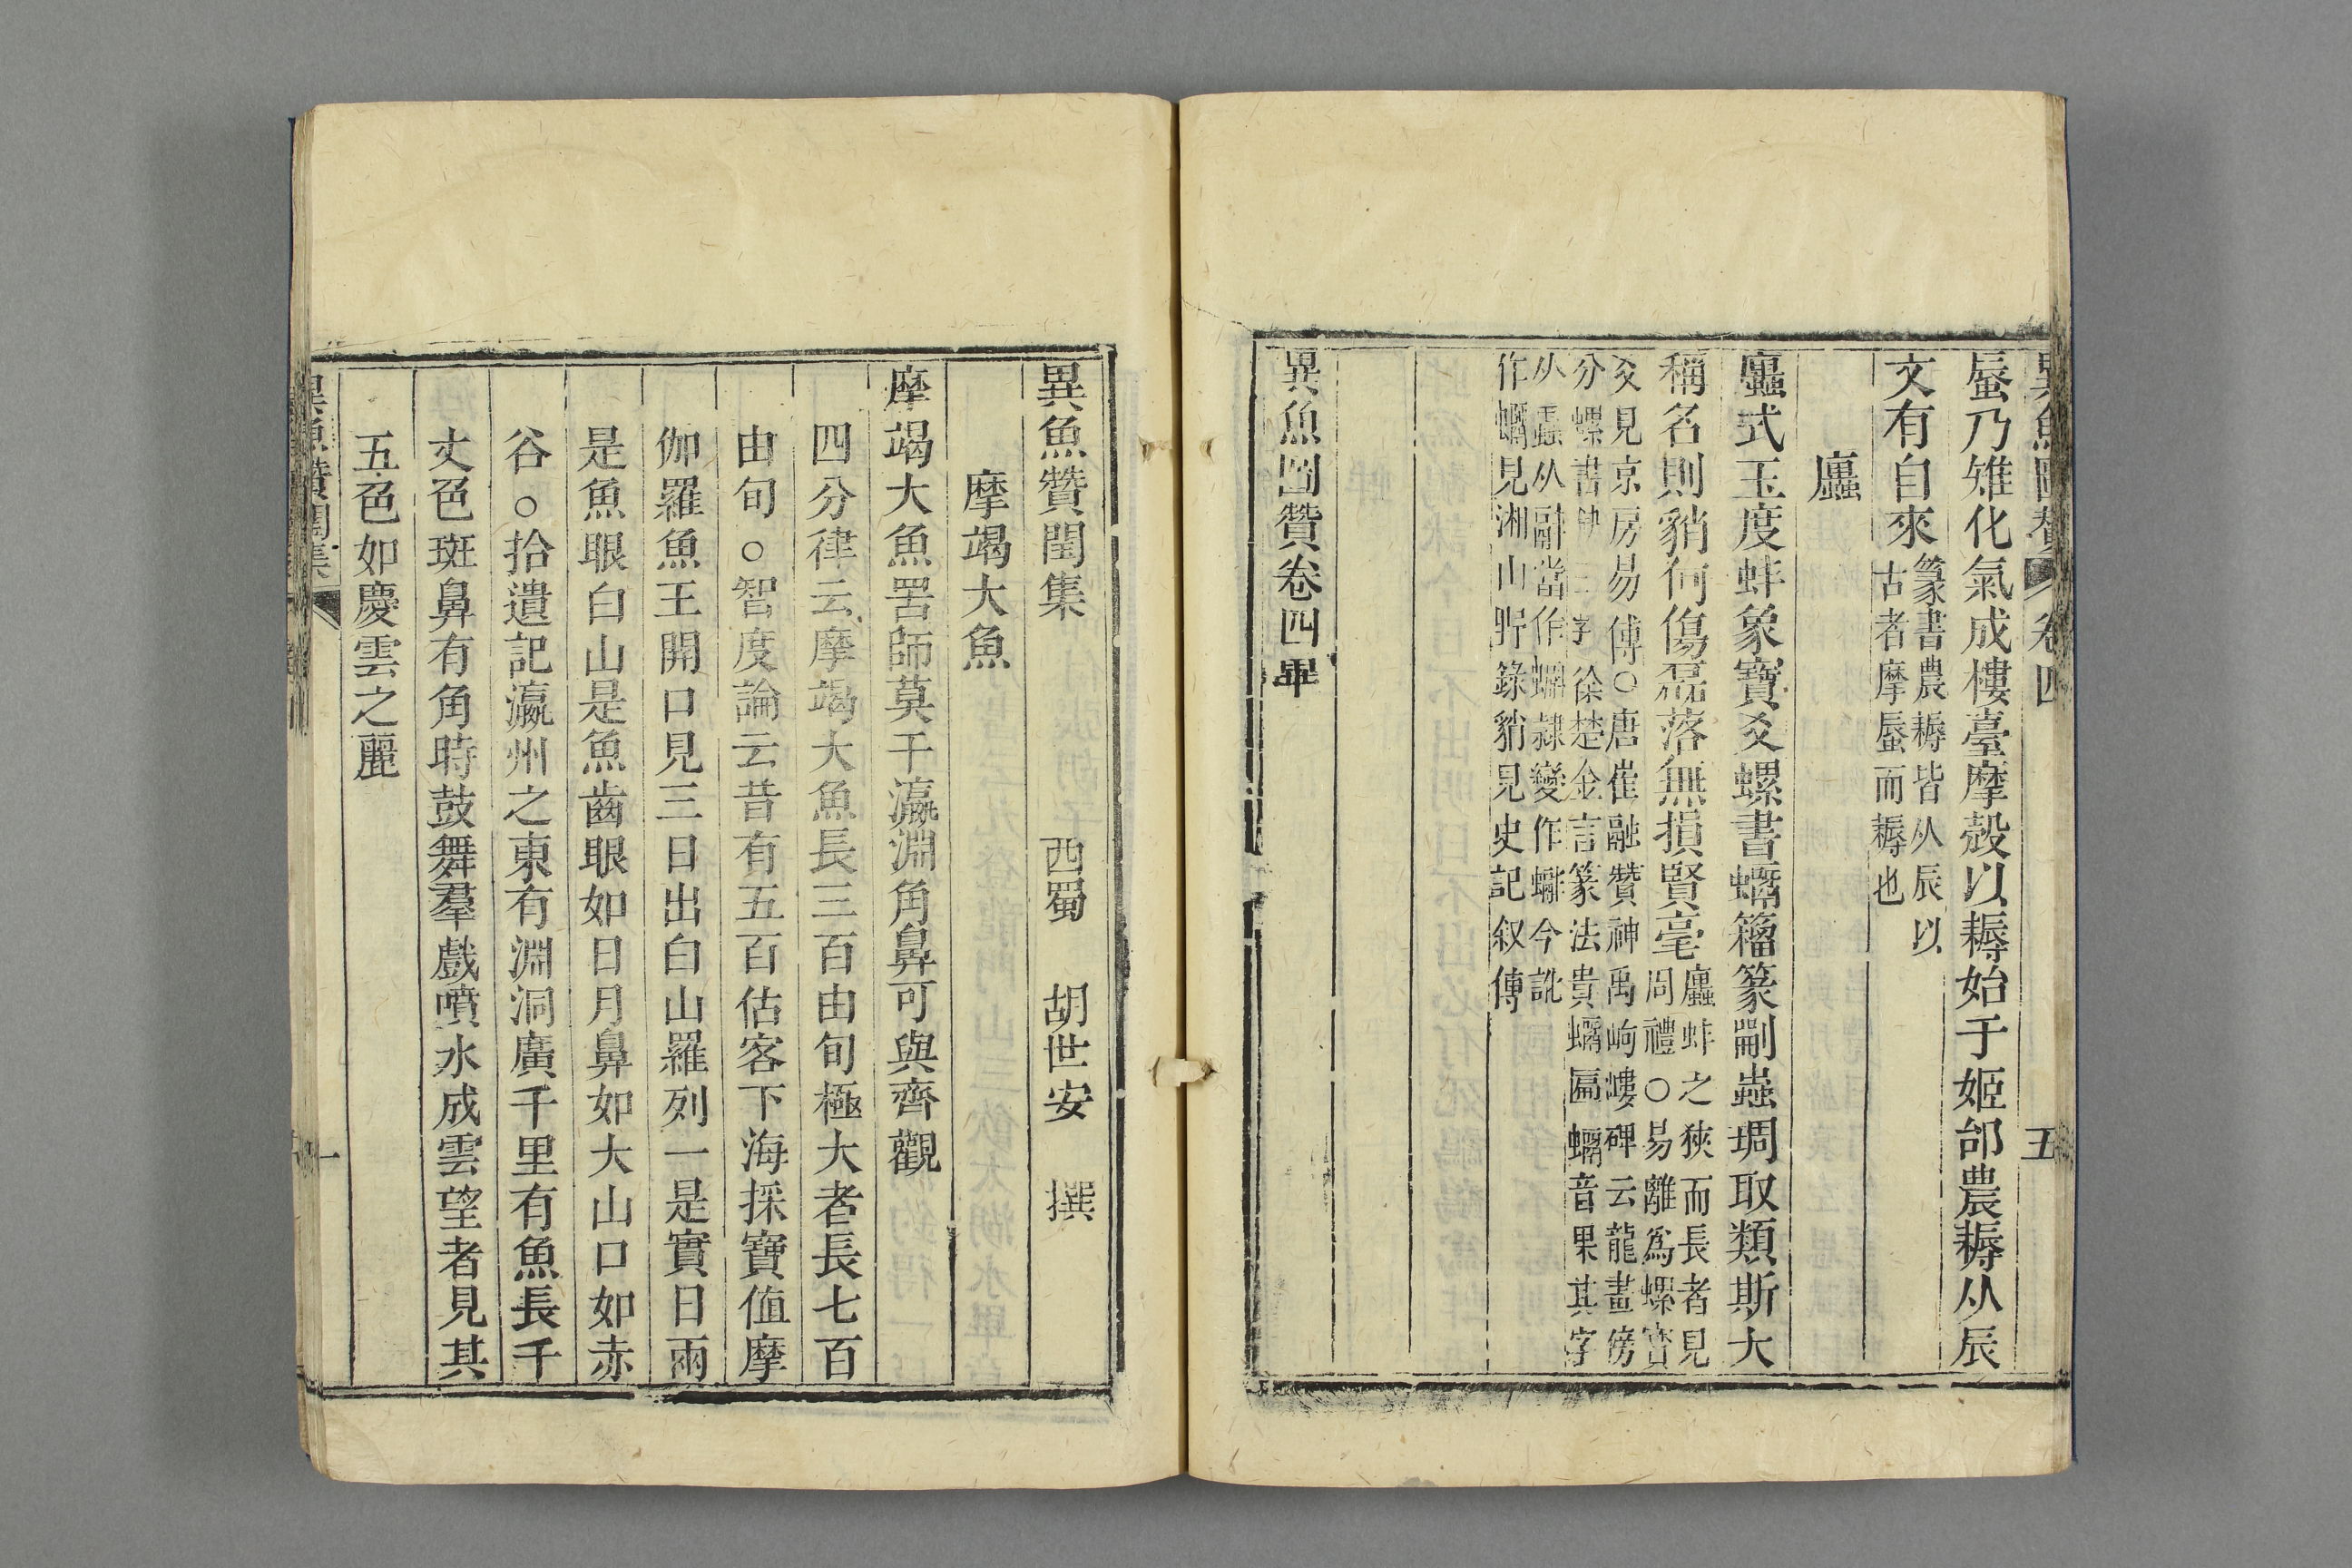 異魚圖贊 卷四 五
蜃乃雉化氣成樓臺摩殼以耨始于姬邰農耨从辰
文有自來篆書農耨皆从辰以
古者摩蜃而耨也
蠯
蠯式玉度蚌象寶爻螺書蠣籀篆劚蟲琱取類斯大
稱名則貌何傷磊落無損賢毫蠯蚌之狹而長者見
周禮○易離為螺寶
爻見京房易傳○唐崔融贊神禹岣嶁碑云龍畫傍
分螺書匾三字徐楚金言篆法貴蠣匾蠣音果其字
从蟲从 當作蠣隸變作 今訛
作蠣見湘山野錄 見史記叙傳
異魚圖贊卷四畢
異魚贊閏集
西蜀 胡世安 撰
摩竭大魚
摩竭大魚罟師莫干瀛淵角鼻可與齊觀
四分律云摩竭大魚長三百由旬極大者長七百
由旬○智度論云昔有五百估客下海採寶值摩
伽羅魚王開口見三日出白山羅列一是實日兩
是魚眼白山是魚齒眼如日月鼻如大山口如赤
谷○拾遺記瀛州之東有淵洞廣千里有魚長千
丈色斑鼻有角時鼓舞羣戲噴水成雲望者見其
五色如慶雲之麗
異魚贊閏集 一